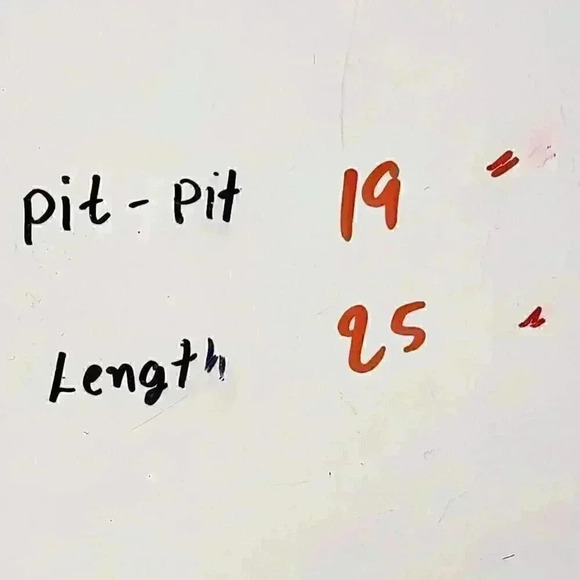 pit - pit 19 "
Length 25 "